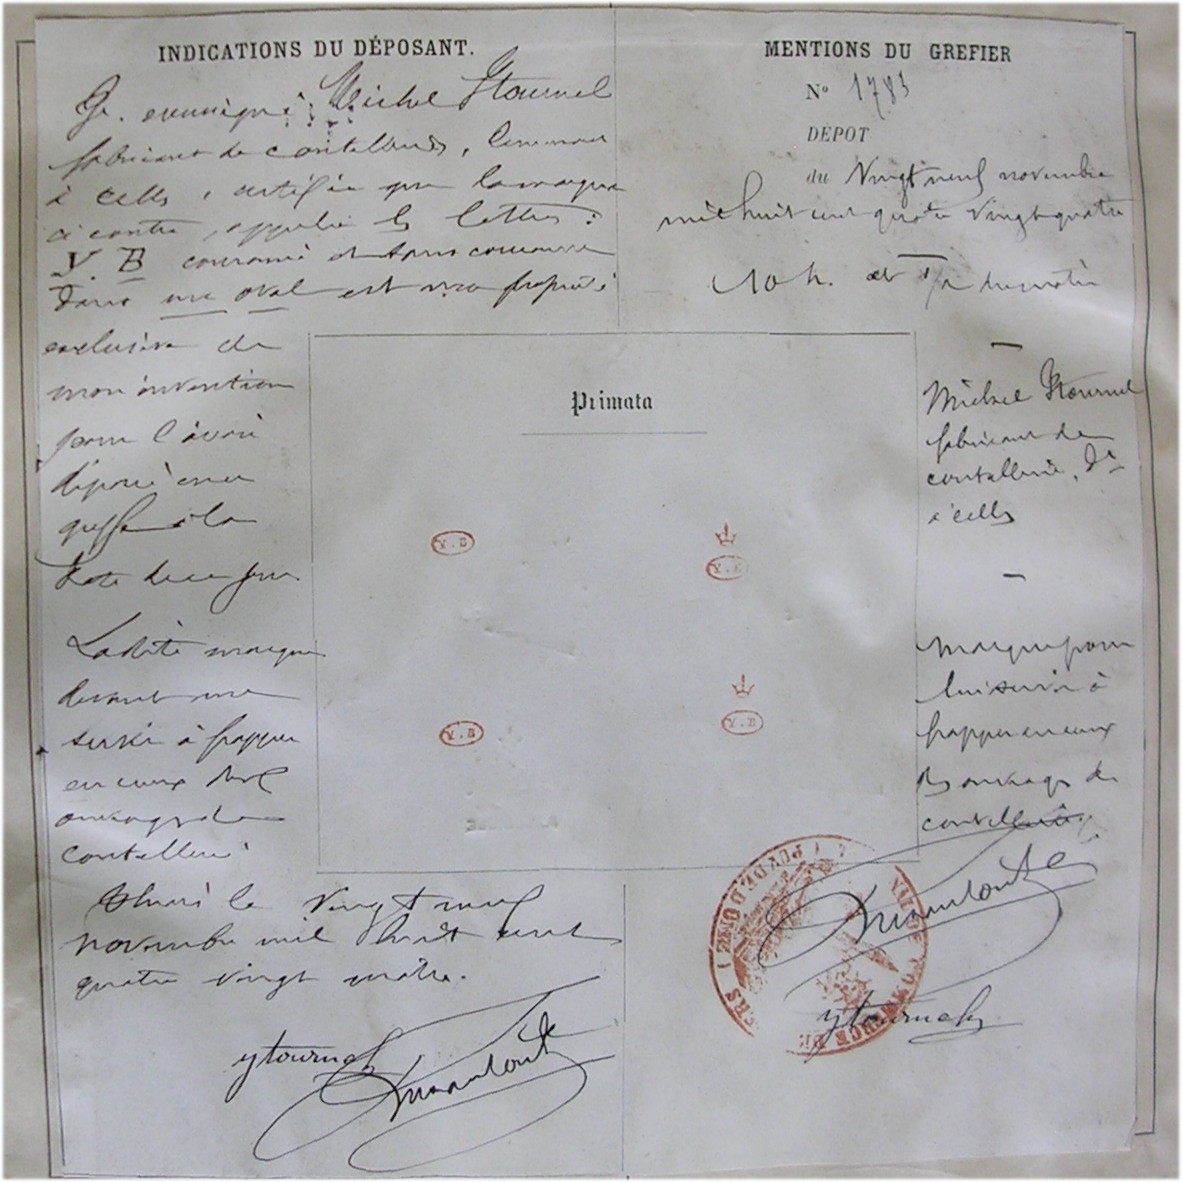 INDICATIONS DU DÉPOSANT.
Je soussigné, Michel Ytournel
fabricant de coutelleries, demeurant
à Celles, certifie que la marque
ci contre, appelée les lettres :
Y. B couronné et sans couronne
dans un oval est ma propriété
exclusive de
mon invention
pour l'avoir
déposé ce
greffe à la
date de ce jour
Ladite marque
devant me
servir à frapper
en creux
ouvrages de
coutellerie
Thiers le vingt neuf
novembre mil huit cent
quatre vingt quatre.
ytournel
MENTIONS DU GREFIER
N° 1783
DÉPOT
du Vingt neuf novembre
mil huit cent quatre vingt quatre
10 h. et 1/2 du matin
Michel Ytournel
fabricant de
coutellerie, dt
à Celles
Marque pour
lui servir à
frapper en creux
les ouvrages de
coutellerie.
ytournel
Primata
Y.B
Y.B
Y.B
Y.B